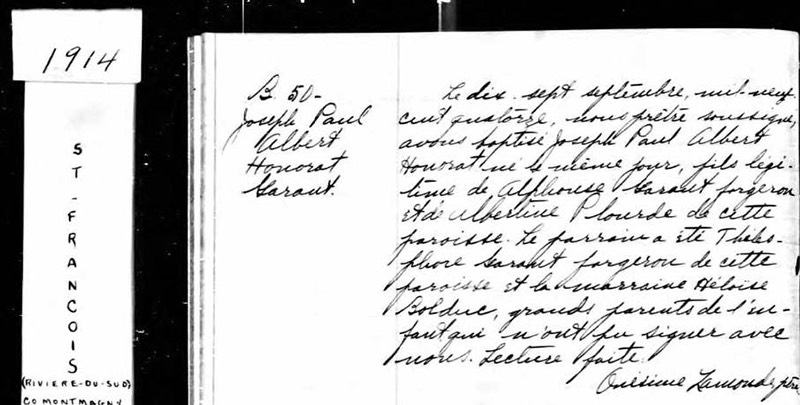 1914
ST-FRANCOIS
(RIVIERE-DU-SUD)
CO MONTMAGNY
B. 50-
Joseph Paul
Albert
Honorat
Garant.
Le dix-sept septembre, mil-neuf-
cent quatorze, nous prêtre soussigné,
avons baptisé Joseph Paul Albert
Honorat né le même jour, fils légi-
time de Alphonse Garant forgeron
et de Albertine Plourde de cette
paroisse. Le parrain a été Théles-
phore Garant forgeron de cette
paroisse et la marraine Héloïse
Bolduc, grands parents de l'en-
fant qui n'ont pu signer avec
nous. Lecture faite.
Onésime Lamonde, ptre